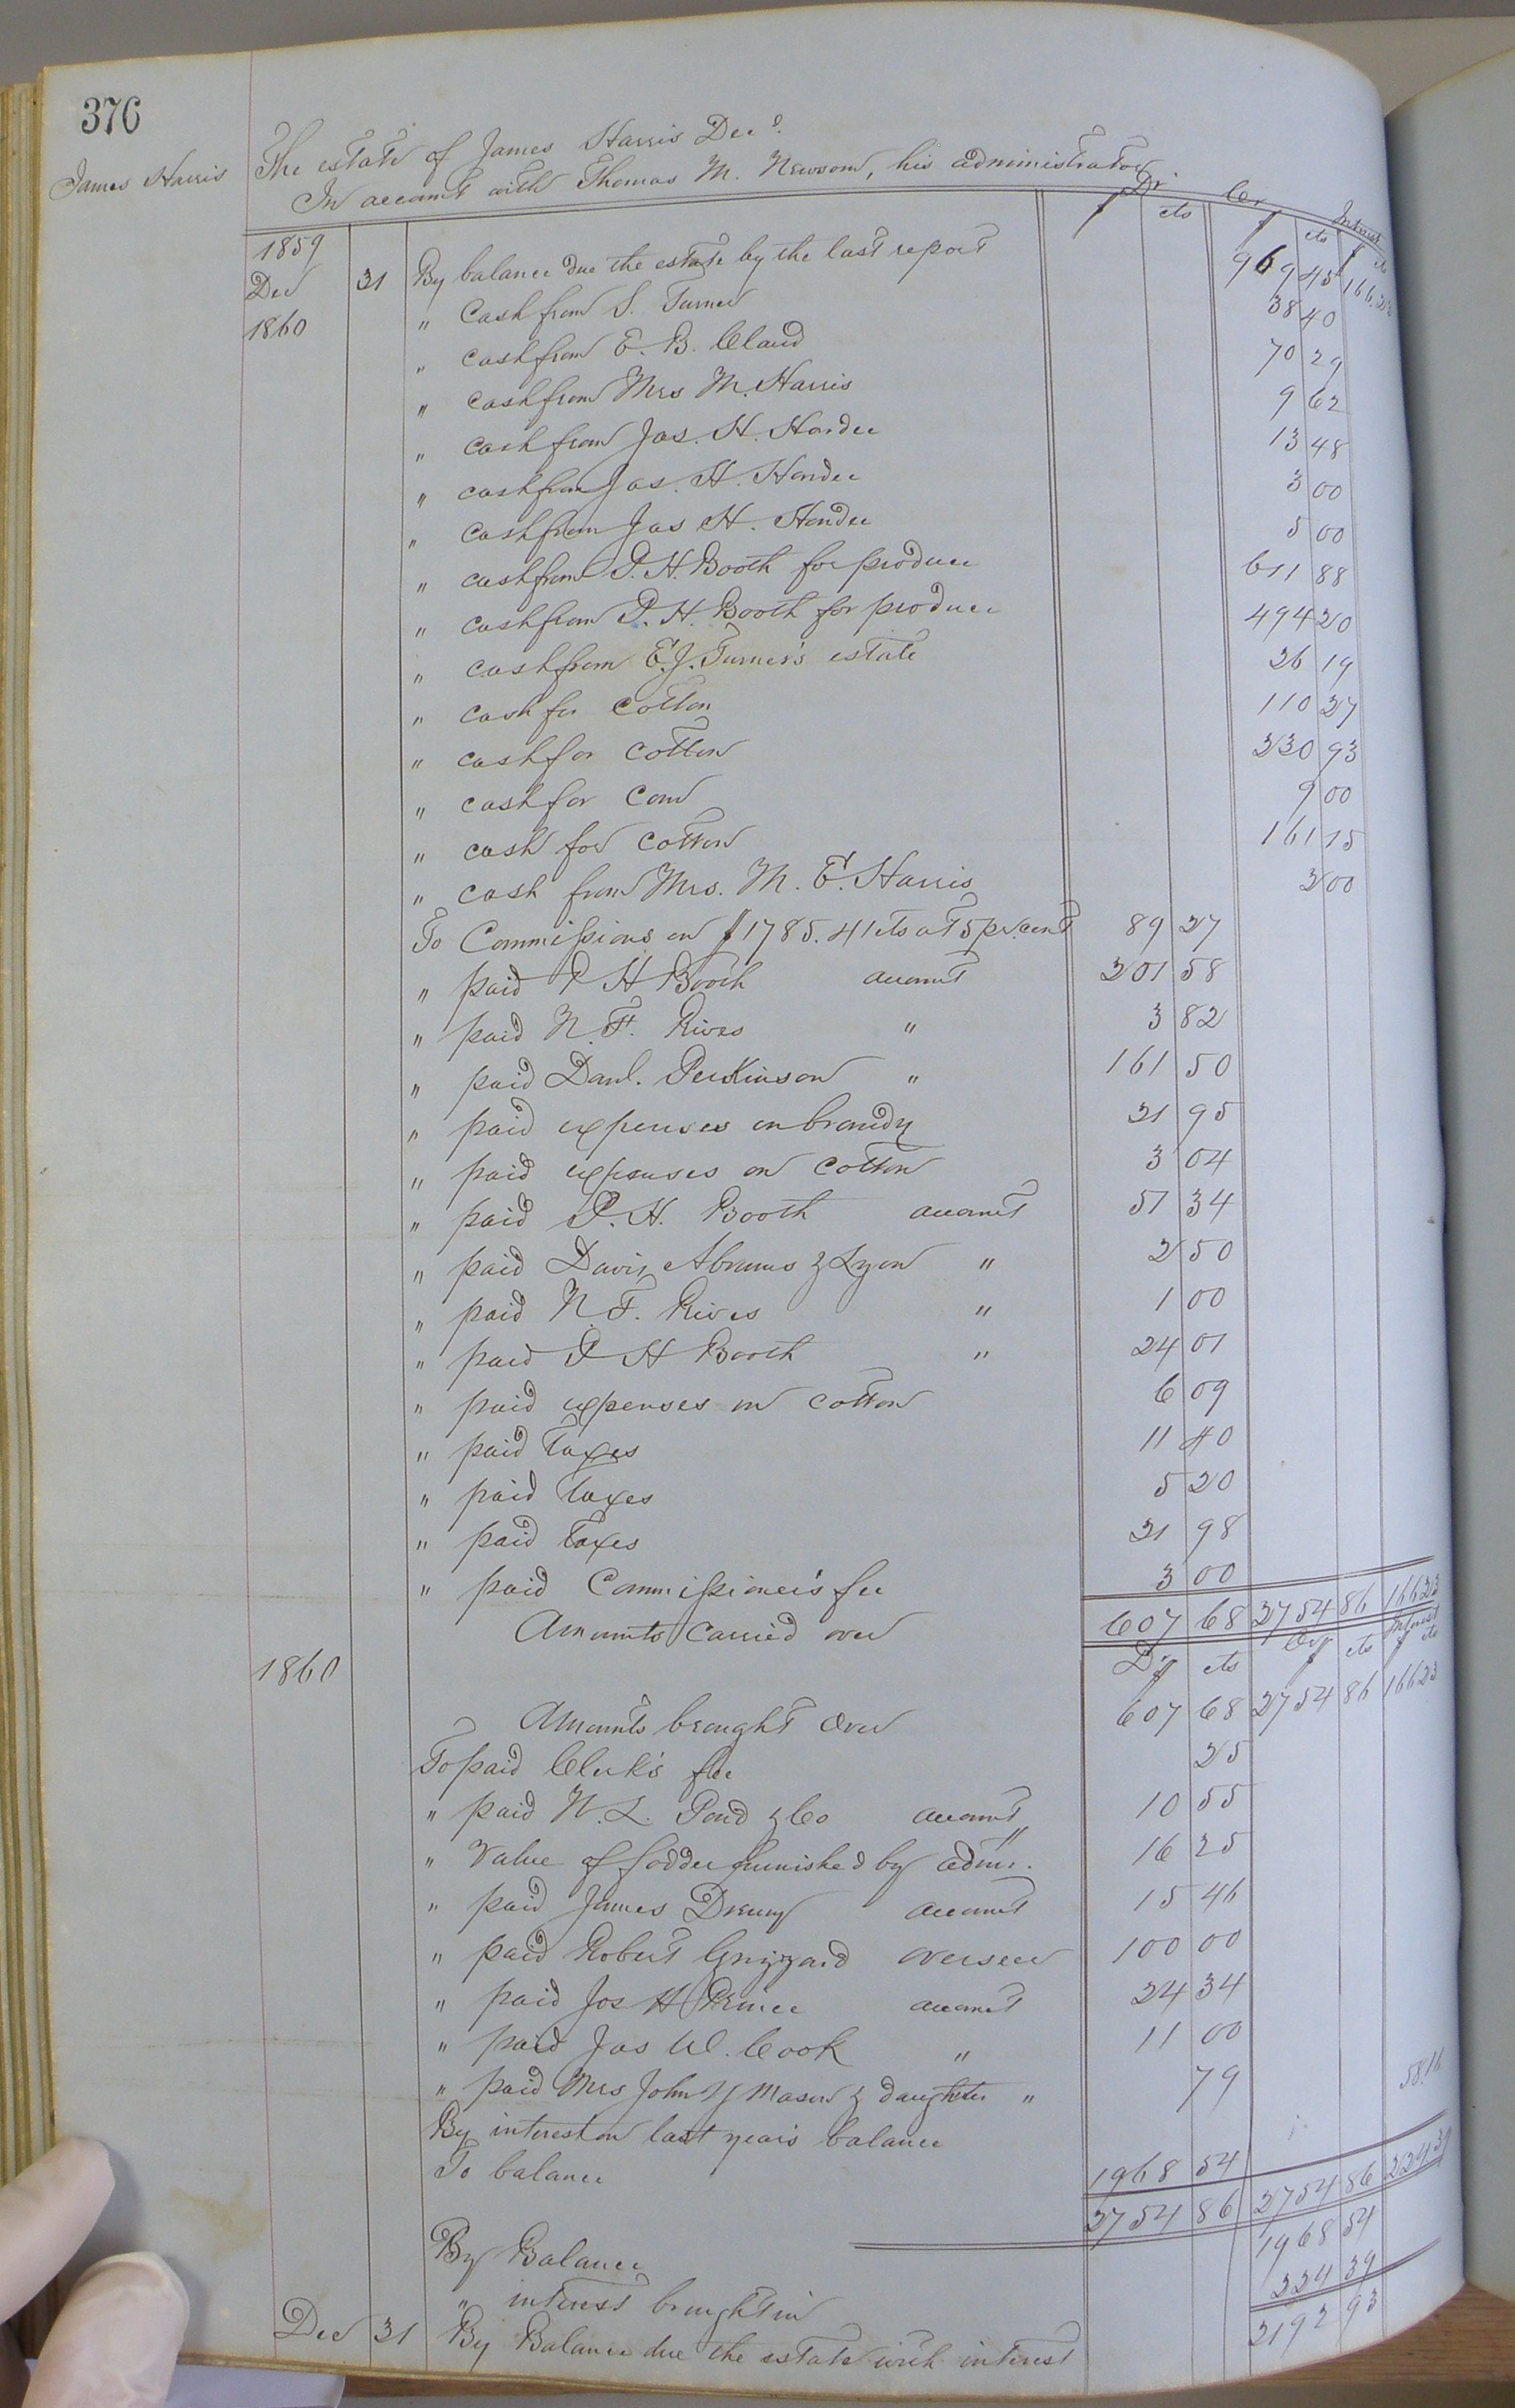 376
James Harris
The estate of James Harris Decd.
In account with Thomas M. Newsom, his administrator
Dr. Cr Interest
$ cts $ cts $ cts
1859
Dec 31 By balance due the estate by the last report 969 45 166.23
1860 " Cash from S. Turner 38 40
" cash from E. B. Claud 70 29
" cash from Mrs M. Harris 9 62
" cash from Jas. H. Hardee 13 48
" cash from Jas. H. Hardee 3 00
" cash from Jas H. Hardee 5 00
" cash from P. H. Booth for produce 611 88
" cash from P. H. Booth for produce 494 20
" cash from E. J. Turner's estate 26 19
" cash for cotton 110 27
" cash for cotton 230 93
" cash for corn 9 00
" cash for cotton 161 15
" cash from Mrs. M. E. Harris 2 00
To Commissions on $1785.41 cts at 5 pr. cent 89 27
" paid P H Booth account 201 58
" paid N. F. Rives " 3 82
" paid Danl. Perkinson " 161 50
" paid expenses on brandy 21 95
" paid expenses on cotton 3 04
" paid P. H. Booth account 51 34
" paid Davis, Abrams & Lyon " 2 50
" paid N. F. Rives " 1 00
" paid P H Booth " 24 01
" paid expenses on cotton 6 09
" paid taxes 11 40
" paid taxes 5 20
" paid taxes 21 98
" paid Commissioner's fee 3 00
Amounts carried over 607 68 2754 86 166 23
1860 Dr $ cts Cr $ cts Interest $ cts
Amounts brought over 607 68 2754 86 166 23
To paid Clerk's fee 25
" paid W. L. Pond & Co account 10 55
" Value of fodder furnished by admr. " 16 25
" paid James Drewry account 15 46
" paid Robert Grizzard overseer 100 00
" paid Jos H Prince account 24 34
" paid Jas W. Cook " 11 00
" paid Mrs John Y Mason & daughter " 79
By interest on last year's balance 58.16
To balance 1968 54
2754 86 2754 86 224 39
By Balance 1968 54
" interest brought in 224 39
Dec 31 By Balance due the estate with interest 2192 93